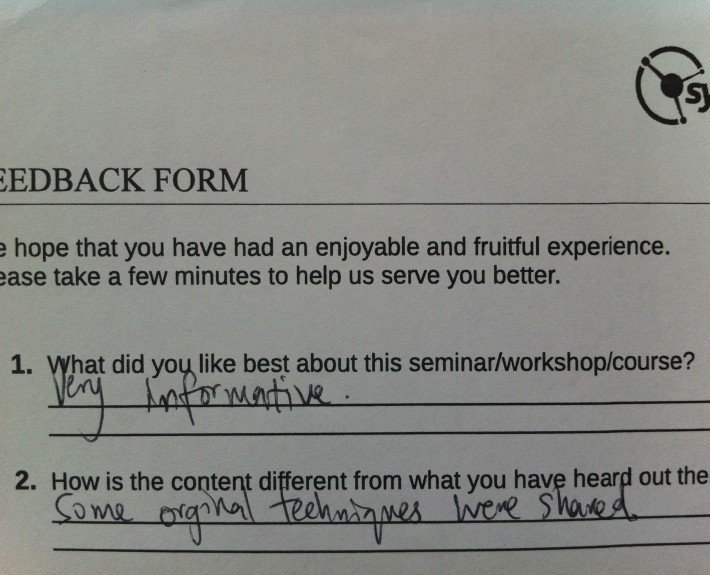 sy
EEDBACK FORM
e hope that you have had an enjoyable and fruitful experience.
ease take a few minutes to help us serve you better.
1. What did you like best about this seminar/workshop/course?
Very Informative.
2. How is the content different from what you have heard out the
Some orginal techniques were shared.